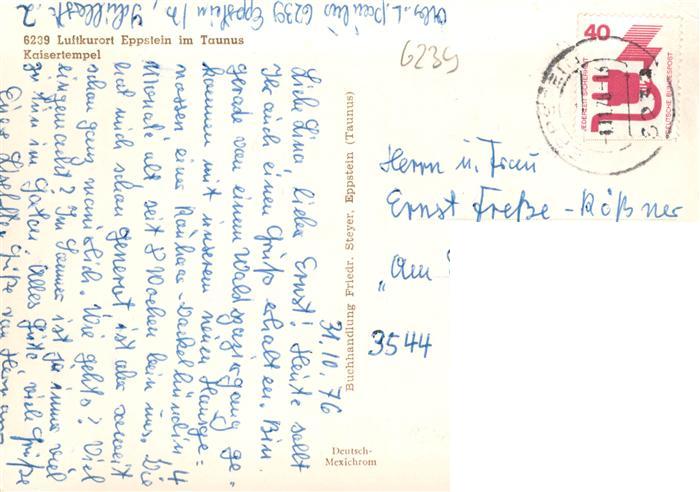 Abs. L. Paulus 6239 Eppstein/Ts, Schillerstr. 2
6239 Luftkurort Eppstein im Taunus
Kaisertempel
6239
40
JEDERZEIT SICHERHEIT
DEUTSCHE BUNDESPOST
31.10.76
Liebe Lina, lieber Ernst! Heute sollt
Ihr auch einen Gruß erhalten. Bin
gerade von einem Waldspaziergang ge-
kommen mit unserem neuen Hausge-
nossen einer Rauhaar-Dackelhündin, 4
Monate alt seit 8 Wochen bei uns. Die
hat mich schon genervt ist aber zeitweit
schon ganz manierlich. Wie gehts? Viel
eingemacht? Im Sommer ist ja immer viel
zu tun im Garten. Alles Gute viele Grüße
Buchhandlung Friedr. Steyer, Eppstein (Taunus)
Deutsch-
Mexichrom
Herrn u. Frau
Ernst Freße-Rößner
"Am
3544